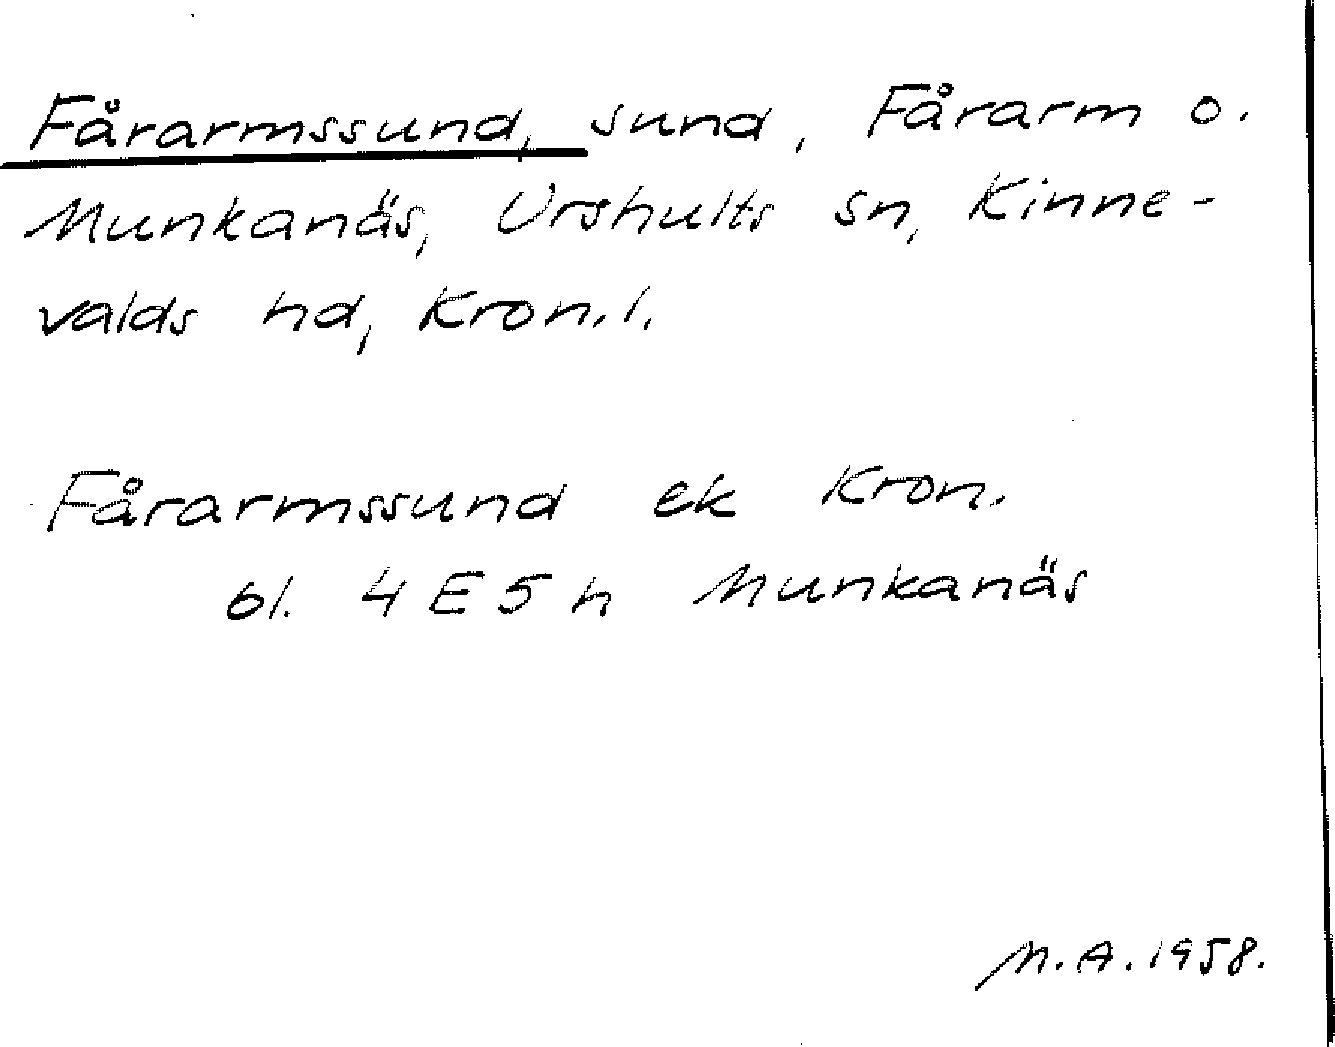 Fårarmssund, sund, Fårarm o.
Munkanäs, Urshults sn, Kinne-
valds hd, Kron.l.
Fårarmssund ek Kron.
bl. 4 E 5 h Munkanäs
M.A. 1958.